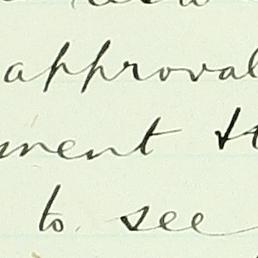 approval
ment
to see